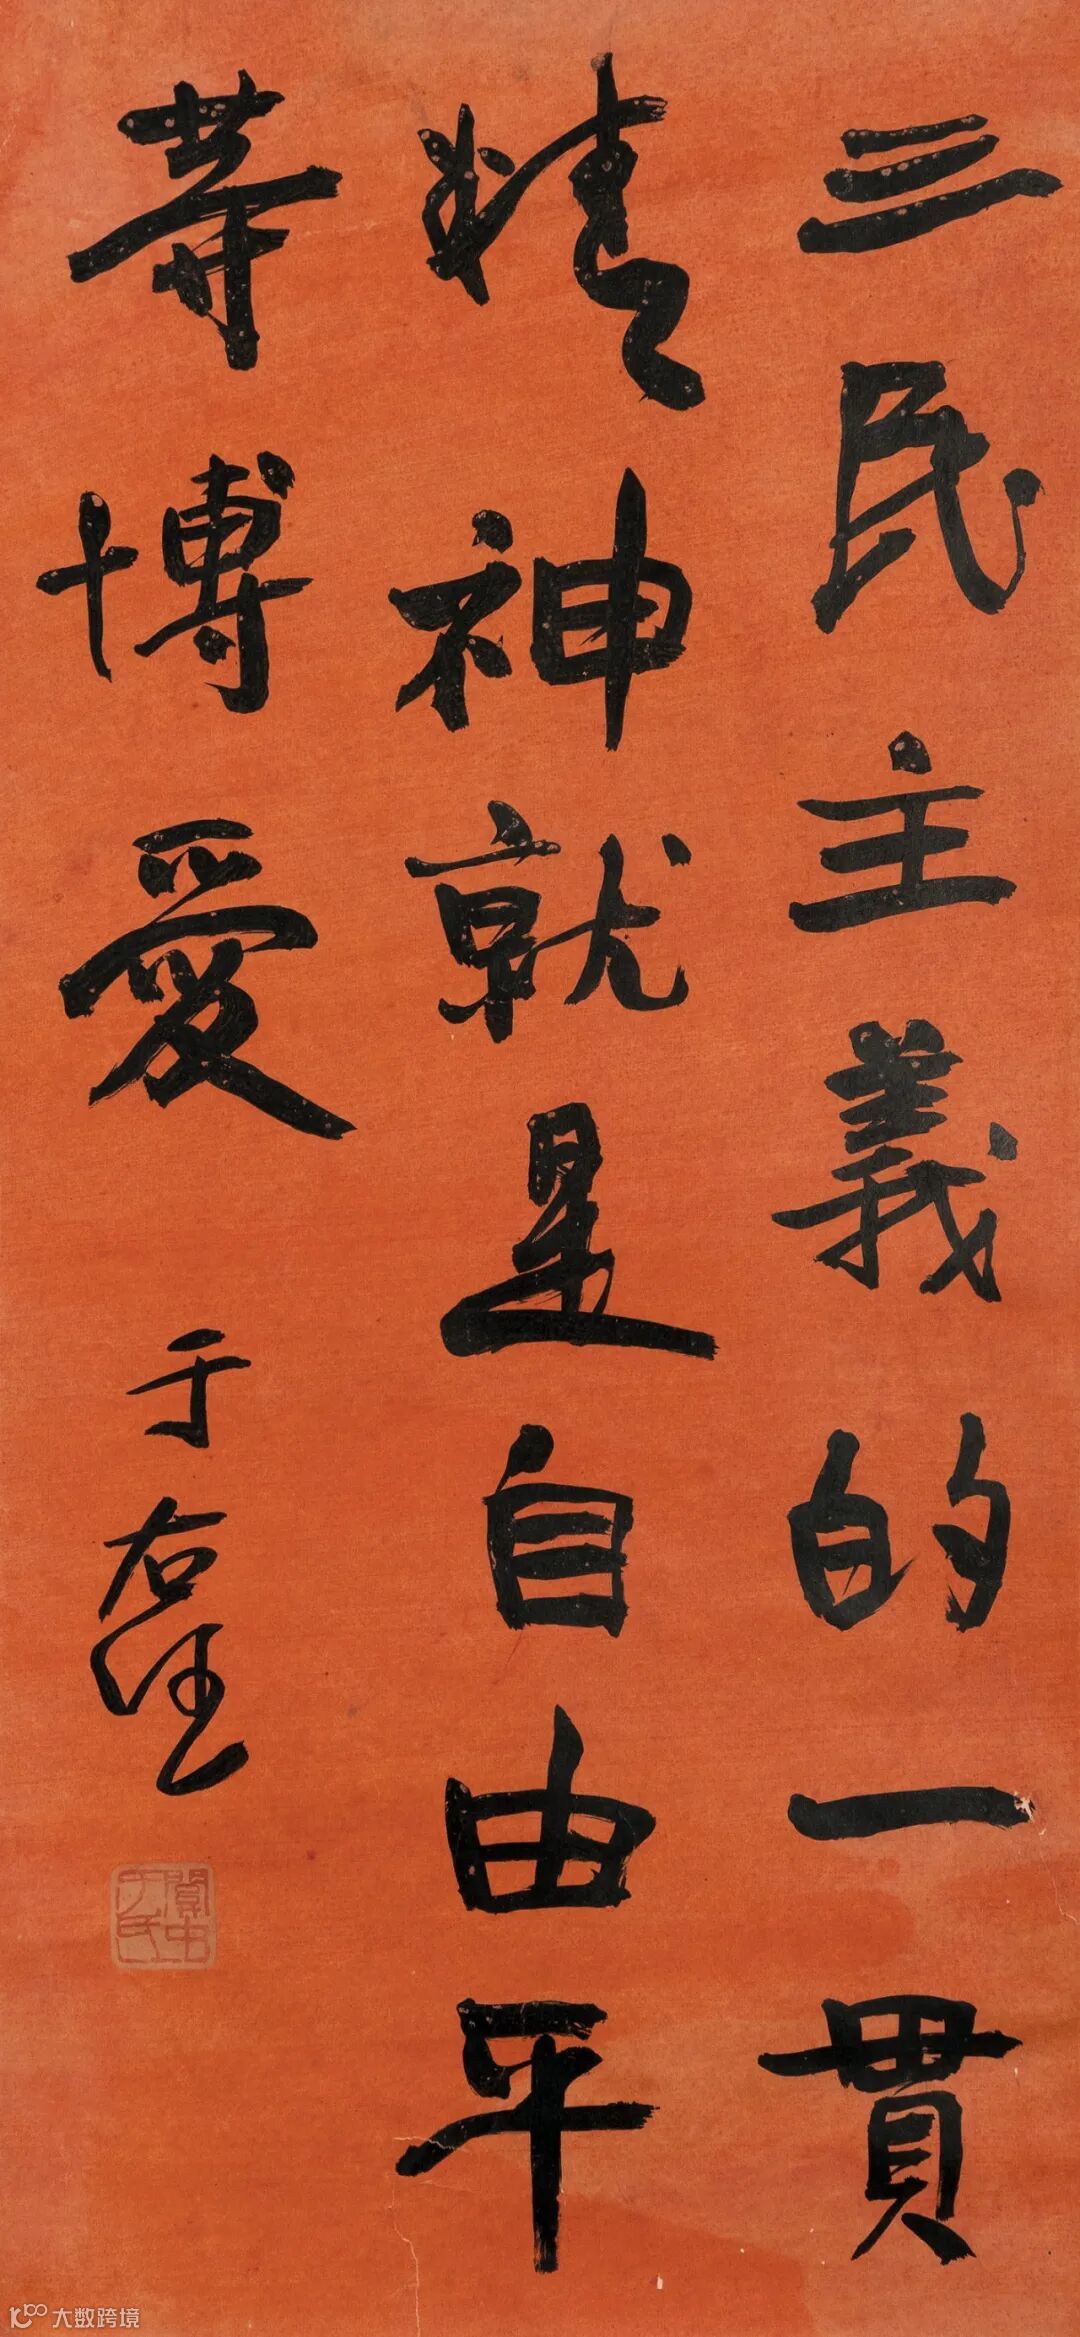 三民主義的一貫
精神就是自由平
等博愛
于右任
關中于氏
大数跨境